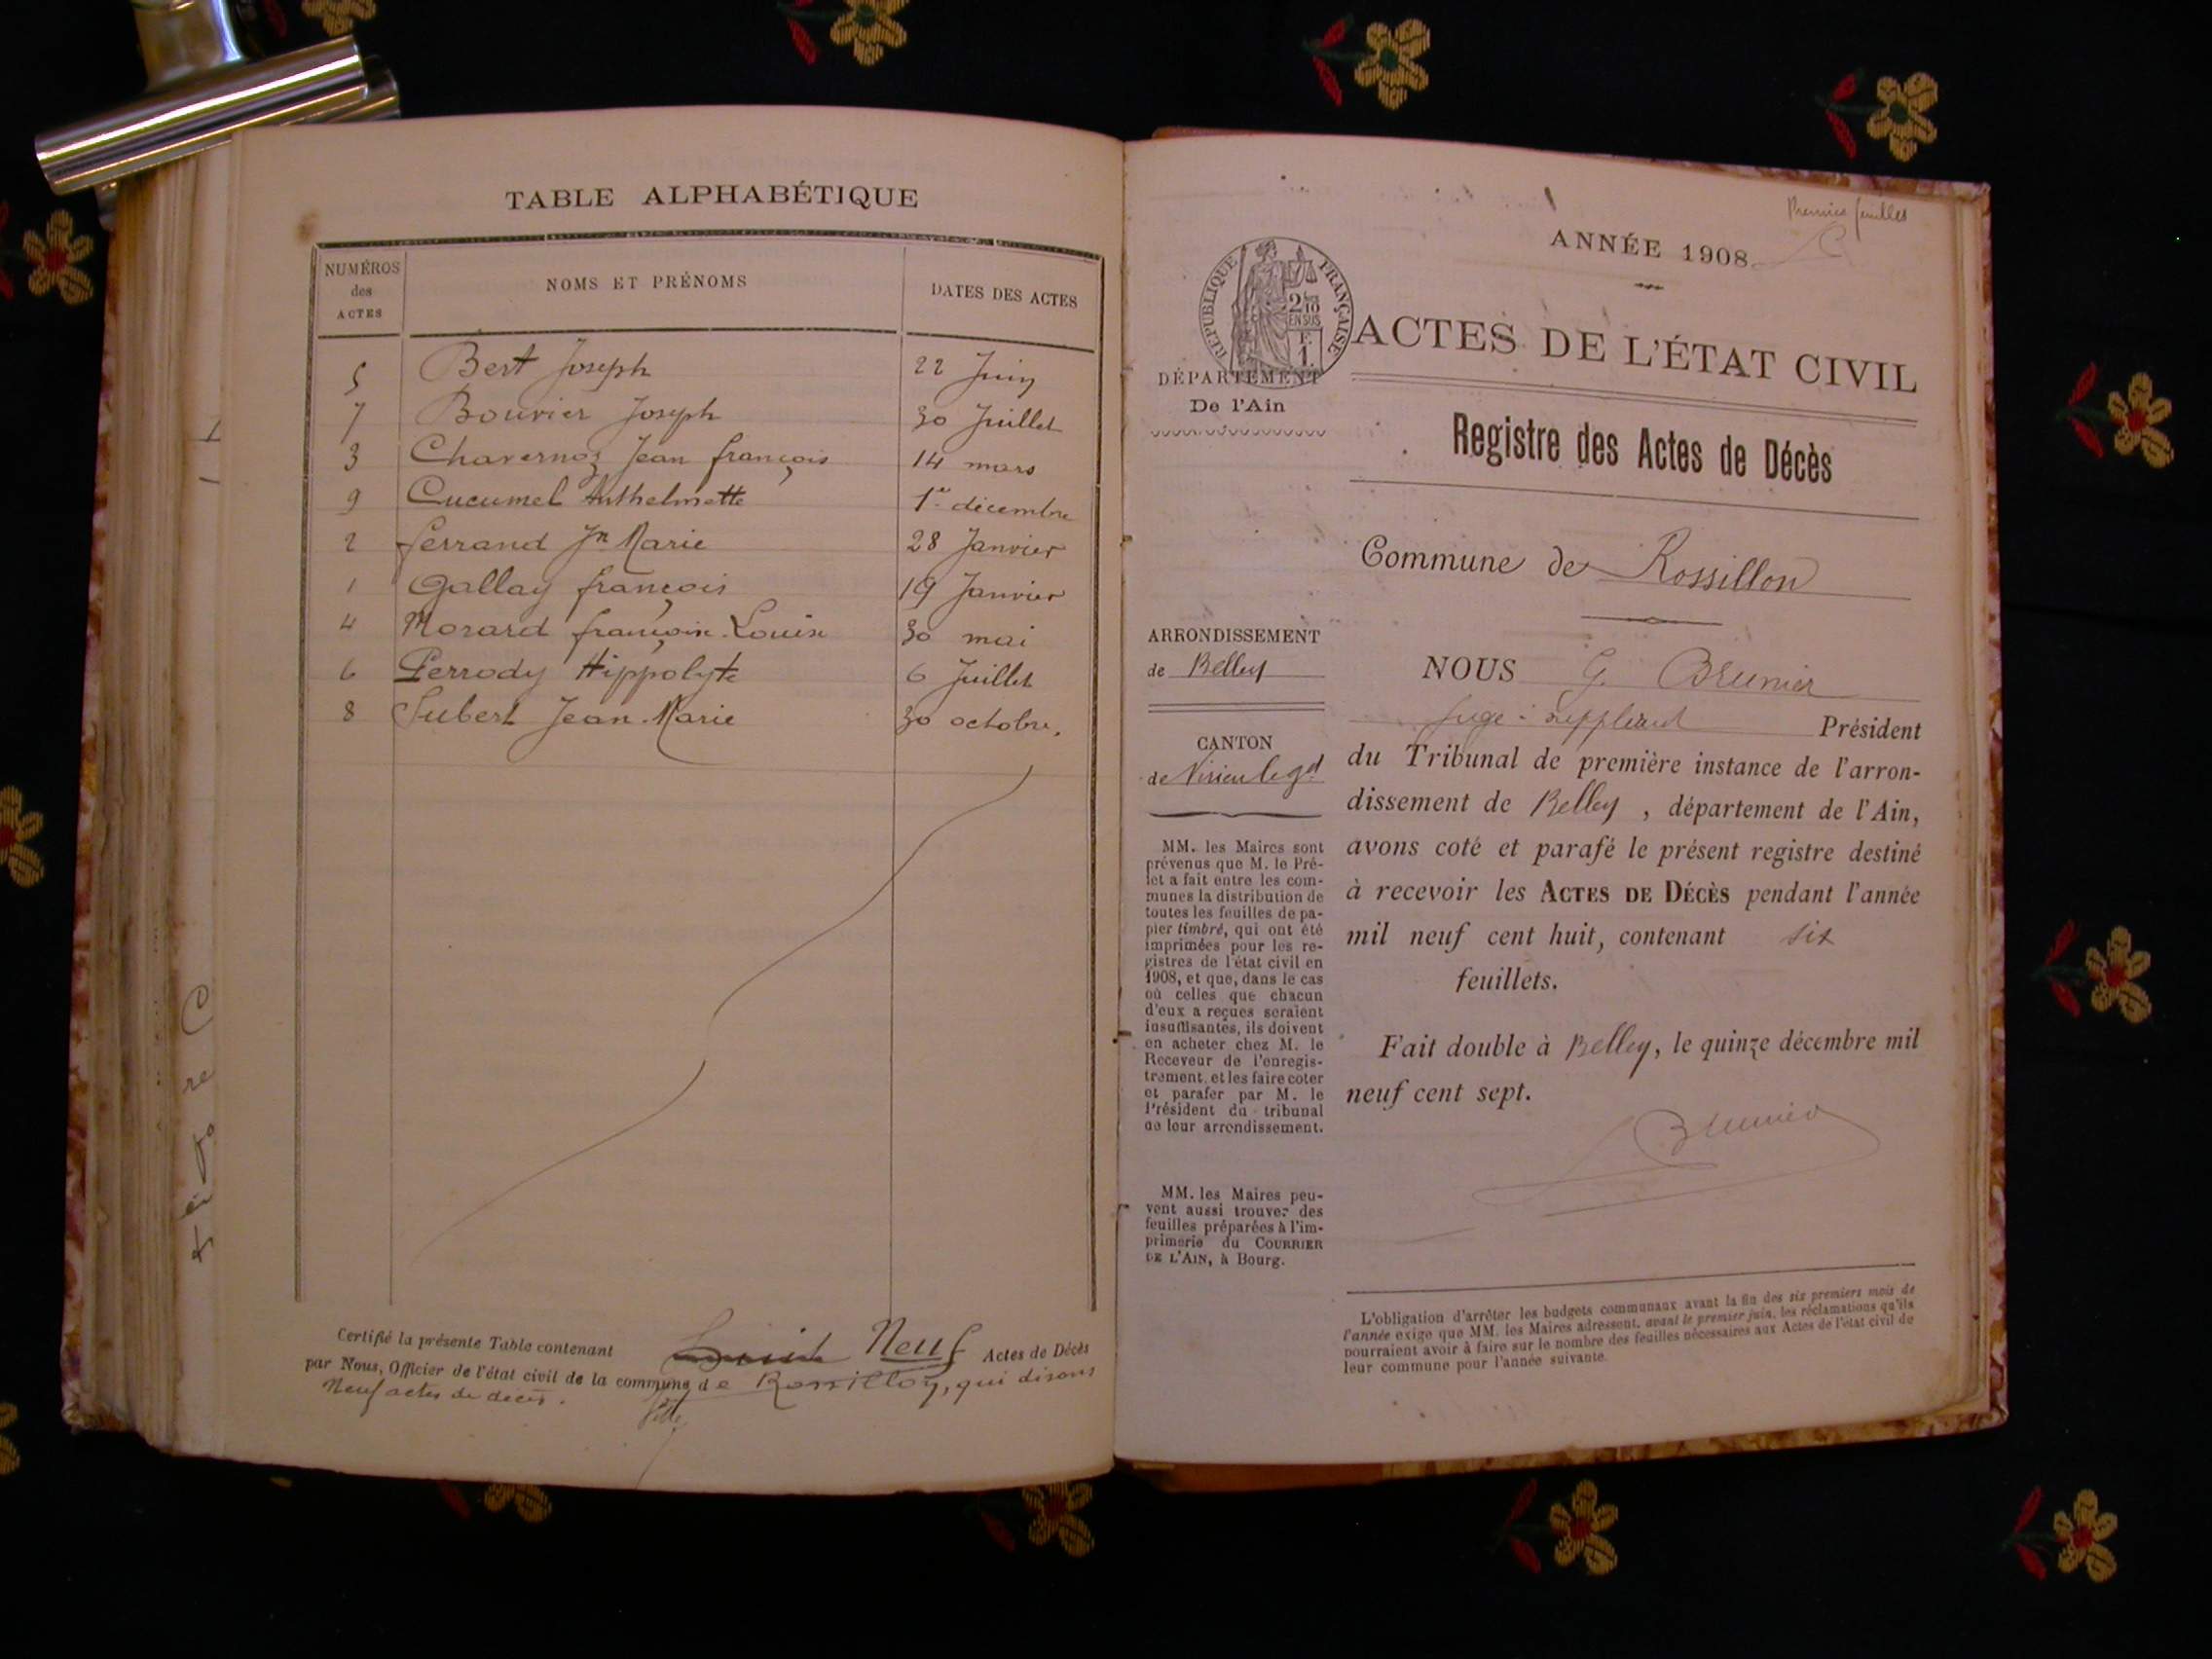 TABLE ALPHABÉTIQUE
NUMÉROS des ACTES | NOMS ET PRÉNOMS | DATES DES ACTES
5 Bert Joseph 22 Juin
7 Bouvier Joseph 30 Juillet
3 Chavernoz Jean françois 14 mars
9 Cucumel Anthelmette 1er décembre
2 ferrand Jn Marie 28 Janvier
1 Gallay françois 19 Janvier
4 Morard françois Louis 30 mai
6 Perrody Hippolyte 6 Juillet
8 Jubert Jean-Marie 30 octobre.
Certifié la présente Table contenant Neuf Actes de Décès
par Nous, Officier de l'état civil de la commune de Rossillon, qui disons
Neuf actes de décès.
Premier feuillet
ANNÉE 1908
RÉPUBLIQUE FRANÇAISE
2/10
EN SUS
F.
1.
ACTES DE L'ÉTAT CIVIL
DÉPARTEMENT
De l'Ain
Registre des Actes de Décès
Commune de Rossillon
ARRONDISSEMENT
de Belley
CANTON
de Virieu le gd
MM. les Maires sont
prévenus que M. le Pré-
fet a fait entre les com-
munes la distribution de
toutes les feuilles de pa-
pier timbré, qui ont été
imprimées pour les re-
gistres de l'état civil en
1908, et que, dans le cas
où celles que chacun
d'eux a reçues seraient
insuffisantes, ils doivent
en acheter chez M. le
Receveur de l'enregis-
trement, et les faire coter
et parafer par M. le
Président du tribunal
de leur arrondissement.
MM. les Maires peu-
vent aussi trouver des
feuilles préparées à l'im-
primerie du COURRIER
DE L'AIN, à Bourg.
NOUS G. Brunier
juge suppléant Président
du Tribunal de première instance de l'arron-
dissement de Belley, département de l'Ain,
avons coté et parafé le présent registre destiné
à recevoir les ACTES DE DÉCÈS pendant l'année
mil neuf cent huit, contenant six
feuillets.
Fait double à Belley, le quinze décembre mil
neuf cent sept.
Brunier
L'obligation d'arrêter les budgets communaux avant la fin des six premiers mois de
l'année exige que MM. les Maires adressent, avant le premier juin, les réclamations qu'ils
pourraient avoir à faire sur le nombre des feuilles nécessaires aux Actes de l'état civil de
leur commune pour l'année suivante.